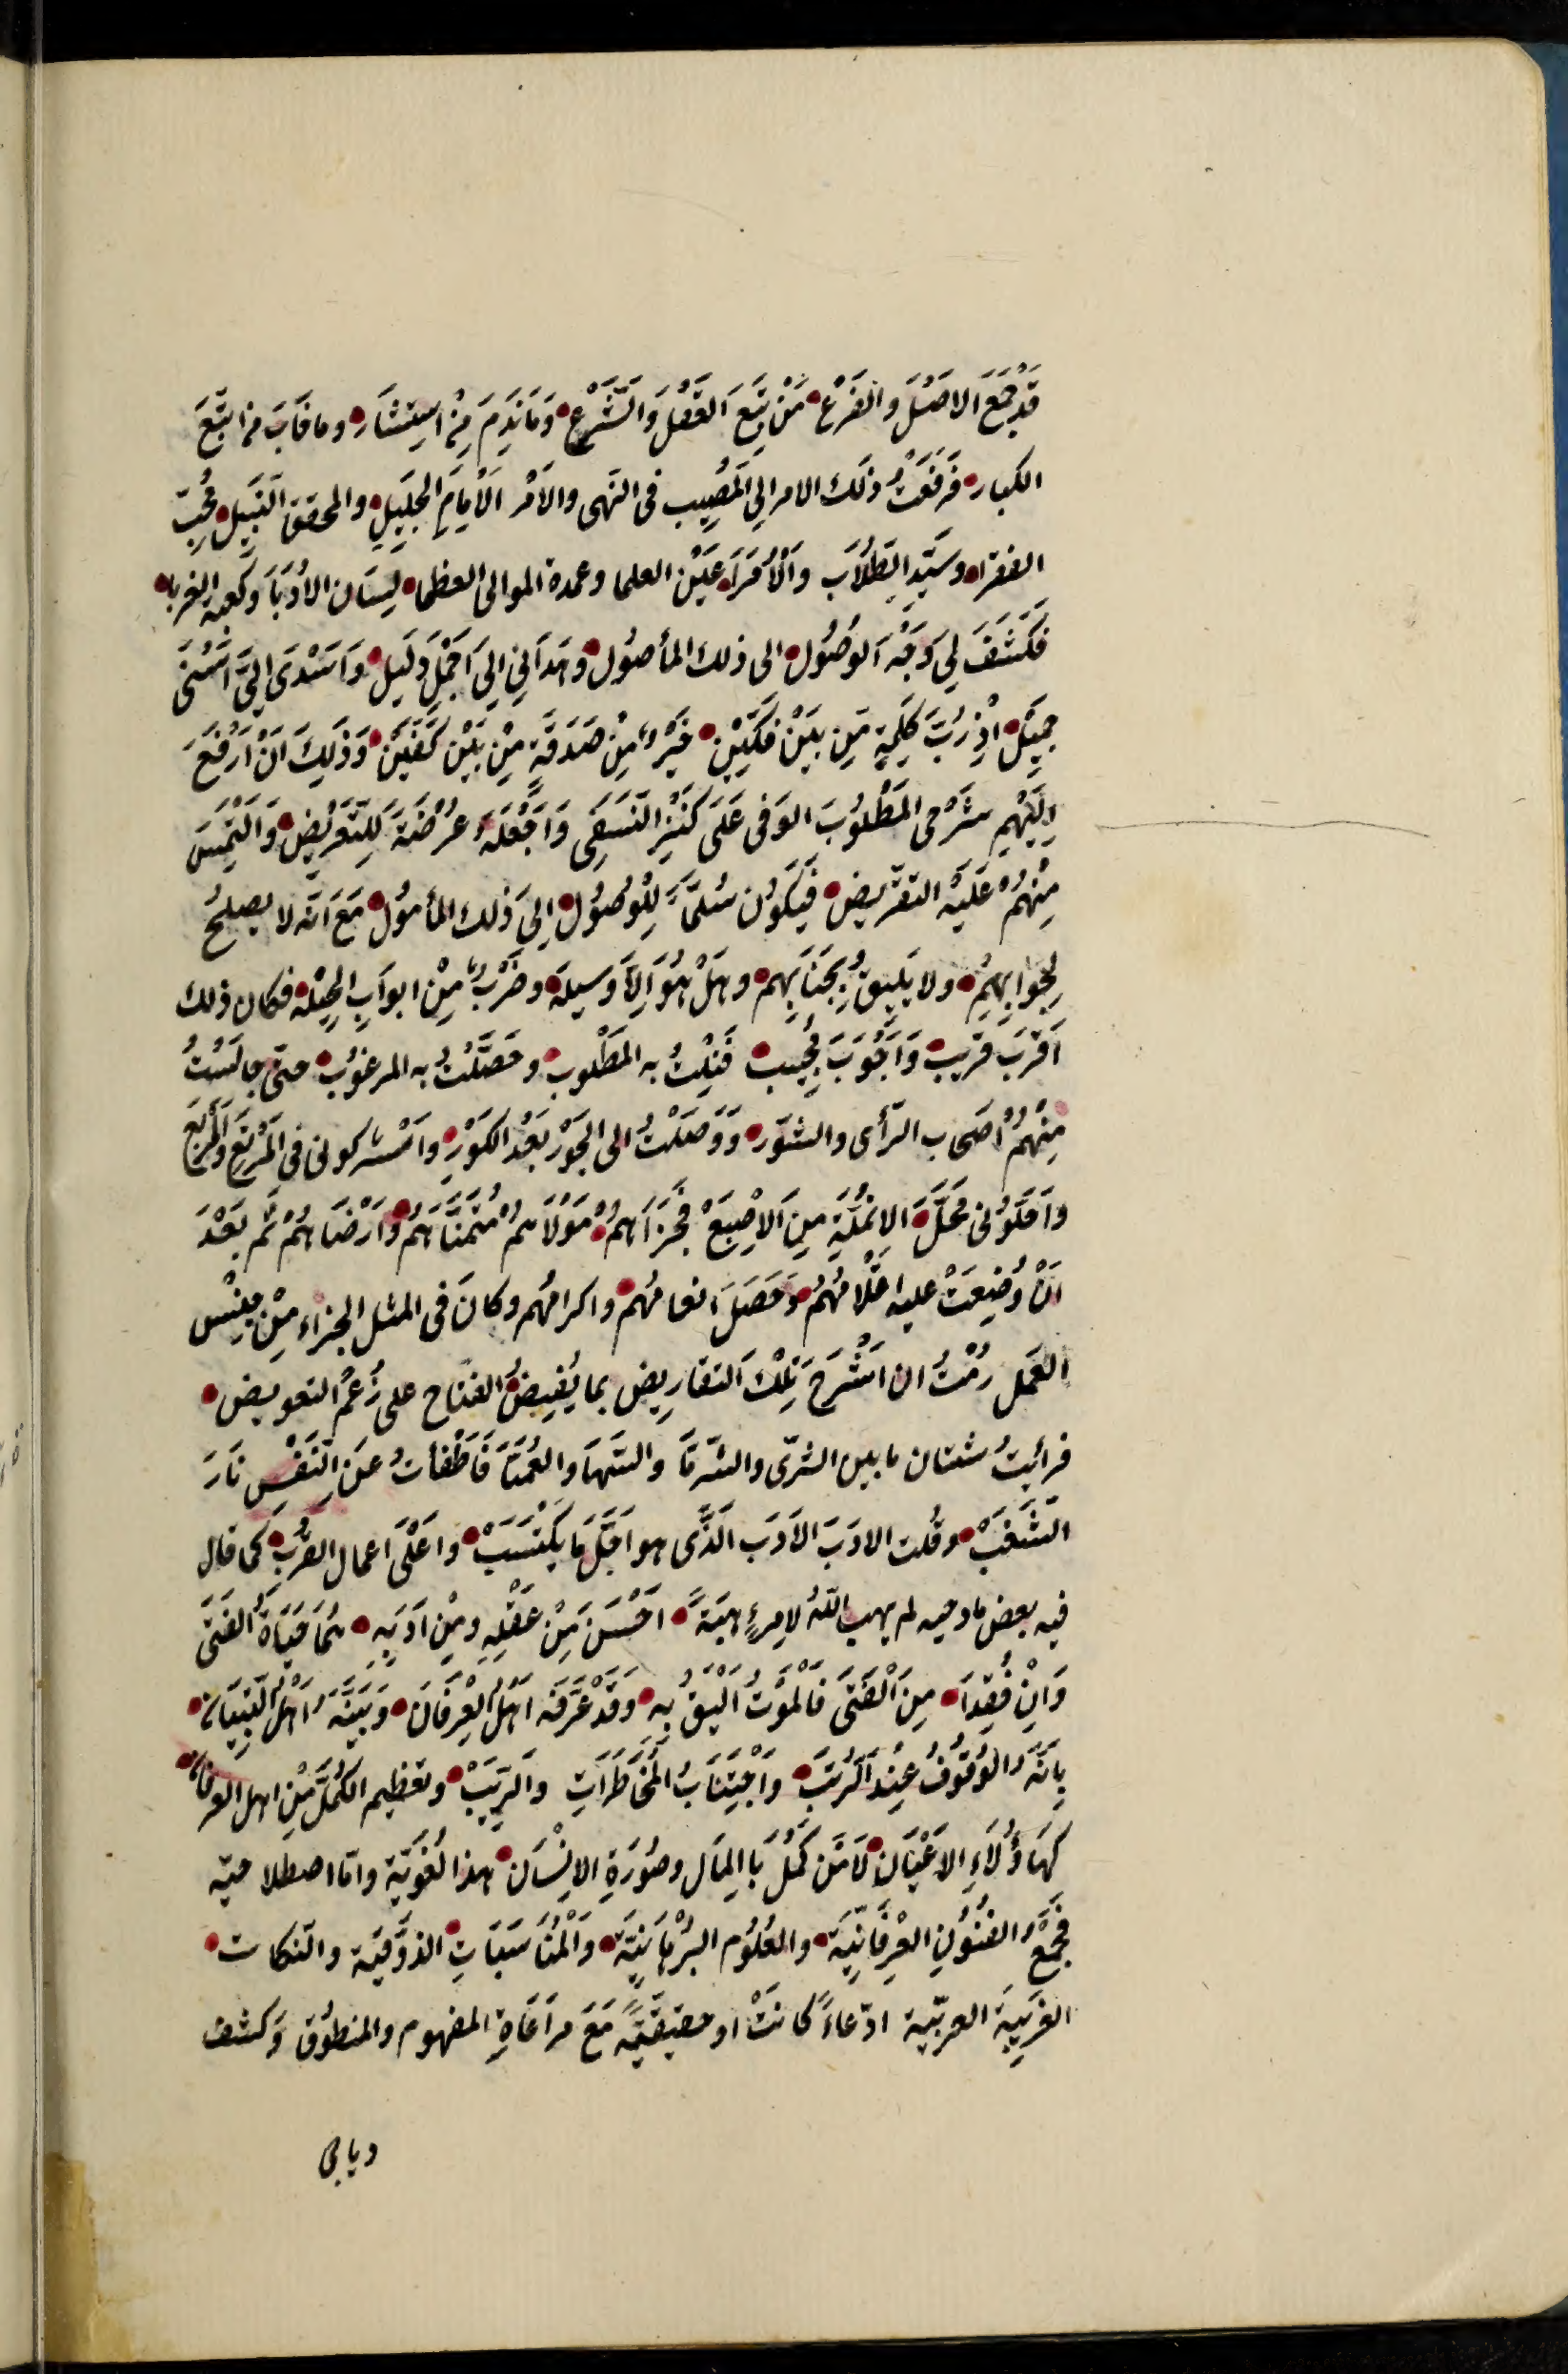 قَدْ جَمَعَ الاصْلَ والفَرْعْ مَنْ تَبِعَ العَقْلَ وَالشَّرْعْ وَمَا نَدِمَ مَنْ اسْتَشَارَ وما خَابَ من اتَّبَعَ
الكبار فَرَفَعْتُ ذلك الامر الى المُصِيب فى النهى والأمر الأمام الجليل والمحقق النبيل مُحِبّ
الفقراء وسَيّد الطُلّاب وَالْأُمَرَاء عَيْن العلما وعمدة الموالى العظما لِسَان الأُدَبَا وكعبة الغربا
فكَشَفَ لِى وَجْهَ الوُصُول الى ذلك المأصول وهَدَانِى الى اَجْمَلِ دَلِيل وَاَسْدَى اِلَىَّ اَسْنَى
جميل اذْ رُبَّ كَلِمَةٍ مِن بَيْن فَكَّيْنْ خَيْرٌ مِنْ صَدَقَةٍ مِنْ بَيْن كَفَّيْن وَذَلِكَ اَنْ اَرْفَعَ
اِلَيْهِم شَرْحِى المَطْلُوبَ الوَفى عَلَى كَنْزِ النَسَفِى وَاَجْعَلَهُ عُرْضَةً لِلتَعْرِيض وَاَلْتَمِسَ
مِنْهُمْ عَلَيْه التقْرِيض فَيَكُون سُلَّمًا لِلْوُصُول اِلَى ذلك المأمُول مَعَ انّه لا يصلحُ
لِجَوابِهِمْ ولا يَلِيقُ بِجَنَابِهِم وهَلْ هُوَ اِلّا وَسيلة وضَرْبٌ مِنْ ابوَابِ الحِيْلة فكان ذلك
اَقْرَبَ قَرِيب وَاَجْوَبَ مُجِيب فَنِلْتُ به المَطْلوب وحَصَّلْتُ به المرغوب حتى جالَسْتُ
مِنْهُمْ اَصْحاب الرّأى والشَوْر وَوَصَلْتُ الى الحَوْر بَعْدَ الكَوْرِ واَشْركونى فى المَرْبَعِ والمَرْتَعِ
واَحَلّونى مَحَلَّ الانمُلَةِ مِنَ الاِصْبَعْ فَجَزَاهُمْ مَوْلَاهُمْ مُتَمَنَّاهُمْ وَاَرْضَاهُمْ ثُمَّ بَعْدَ
اَنْ وُضِعَتْ عليه اَقْلامُهُمْ وَحَصَلَ انعامُهُم واكرامُهُم وكانَ فى المثل الجزاء مِنْ جِنْس
العَمل رُمْتُ ان اَشْرَحَ تِلْكَ التقارِيض بما يُفِيضُ الفتاح على زَعْمِ التعويض
فرائيتُ شتان ما بين الثرّى والثريا والسّها والعُمْيَا فَاَطْفَأتُ عَنِ النَفْسِ نَارَ
الشَغَبْ وقُلت الادَبَ الأدَب الذَّى هو اَجَلّ مَا يكْتَسَبْ واَعْلَى اعمال القُرَبْ كما قال
فيه بعض مادحيه لم يهب اللّهُ لامرءٍ هِبَةً اَحْسَنَ مِنْ عَقْلِهِ ومِنْ اَدَبِهِ هُمَا حَيَاةُ الفَتَى
وَاِنْ فُقِدَا مِنَ اْلْفَتَى فَالْمَوْتُ اَلْيَقُ بِهِ وَقَدْ عَرَّفَه اَهْلُ الْعِرْفَانِ وَبَيَّنَهُ اَهْلُ التِبْيَانِ
بِاَنَّهُ الْوُقُوفُ عِنْدَ الرُتَبِ وَاْجْتِنَابُ الْمُخَاطَرَاتِ والرِيَبْ وتعظيم الكُمَّلِ مِنْ اهل العرفان
كَهَاؤُلَاءِ الاَعْيَان لَا مَنْ كَمُلَ بَالمِال وصُوْرَةِ الاِنْسَان هذا لُغَويَّة وامّا اصطلاحيّه
فَجَمْعُ الفُنُونِ العِرْفَانِيَّة والعُلُوم البُرْهَانِيَّة وَالْمُنَاسَبَاتِ الذَوْقيّة والنكات
الغَرِيبَة العربيّة ادّعاءً كانَتْ او حقيقيَّة مَعَ مرَاعَاةِ المفهوم والمنطوق وكشف
ديابى